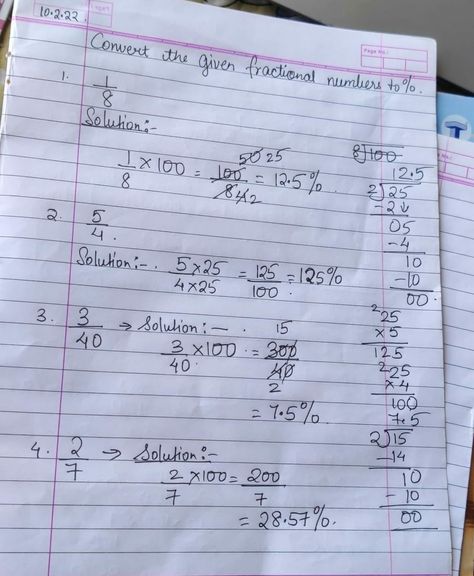 10.2.22.
Page No.:
Convert the given fractional numbers to %.
1. 1/8
Solution:-
1/8 × 100 = 100/8 = 12.5%.
50 25
4 2
8)100
12.5
2)25
-2↓
05
-4
10
-10
00.
2. 5/4.
Solution:-. 5×25/4×25 = 125/100 = 125%
25
×5
125
25
×4
100
3. 3/40 → Solution:-.
3/40 × 100 = 300/40
15
2
= 7.5%.
7.5
2)15
-14
10
-10
00
4. 2/7 → Solution:-
2/7 ×100 = 200/7
= 28.57%.